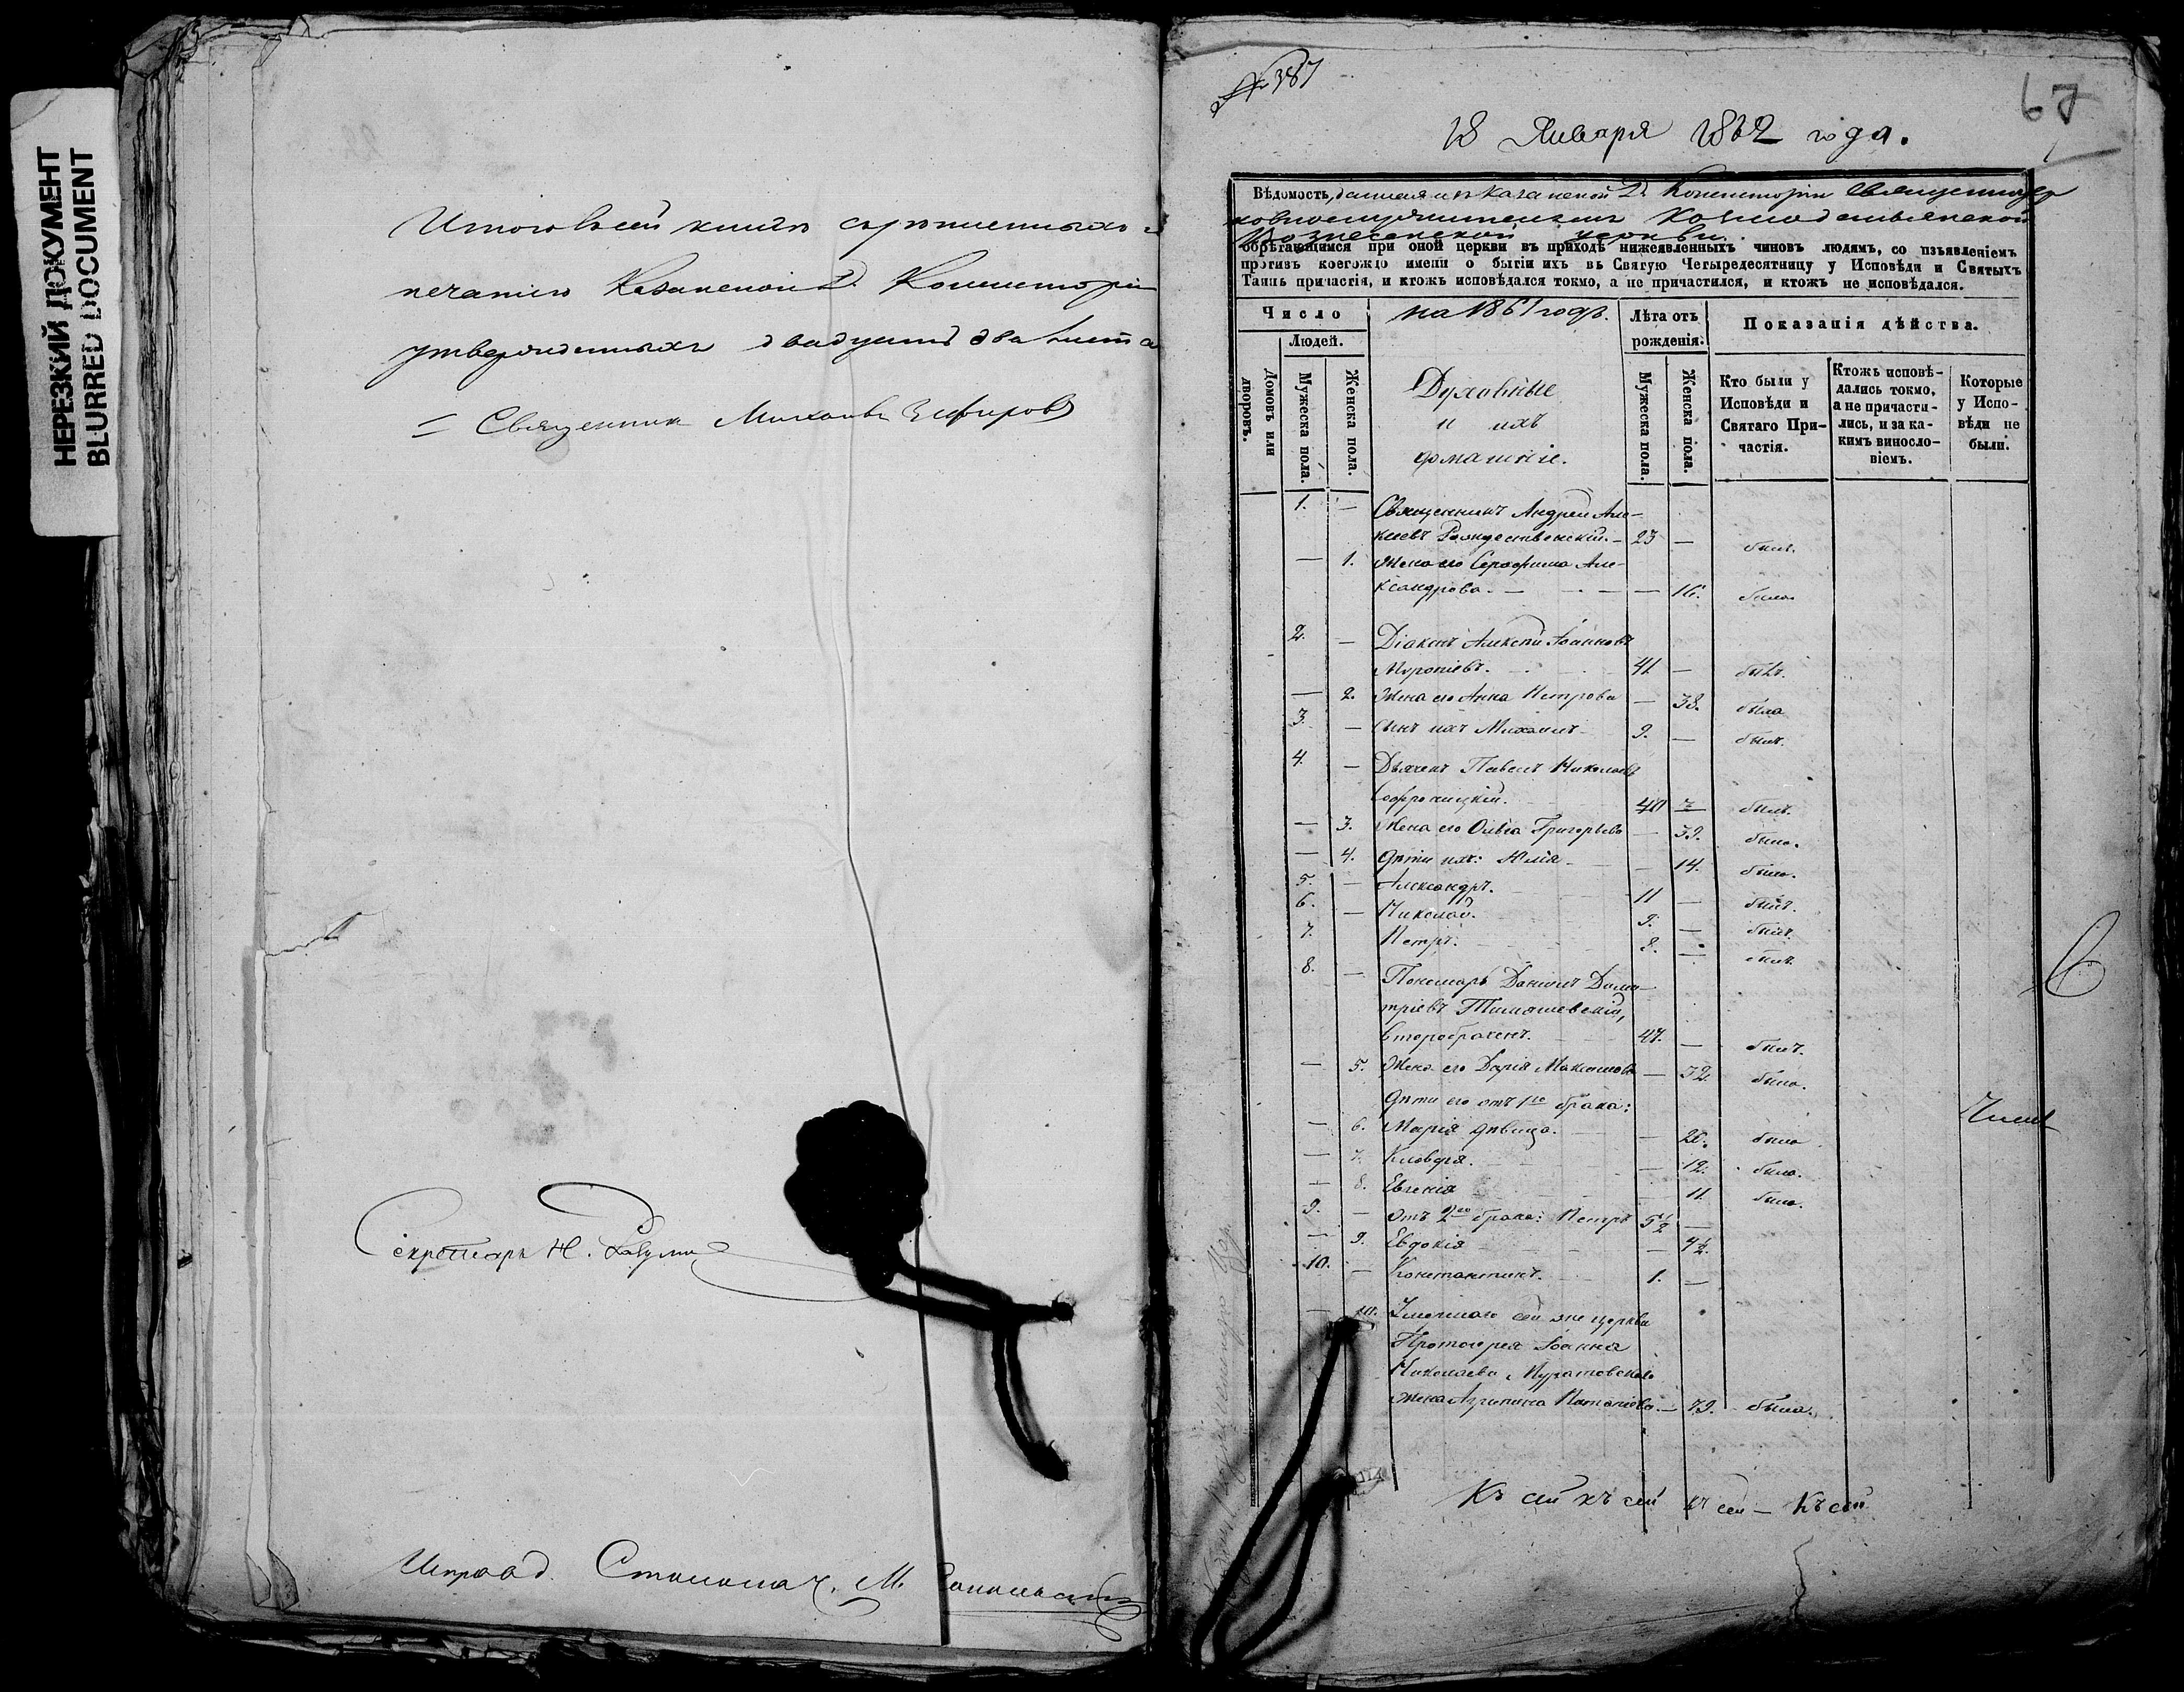 НЕРЕЗКИЙ ДОКУМЕНТ
BLURRED DOCUMENT
Итого в сей книге скрепленныхъ и
печатию Казанской Д. Консисторіи
утвержденныхъ двадцать два листа
Священник Михаилъ Зефировъ
Секретарь Н.
Исправ. д. Столонач. М.
№ 387
67
18 Января 1862 года.
Вѣдомость, данная изъ Казанской Д. Консисторіи Священноцер
ковнослужителямъ Козмодемьянской
Вознесенской церкви.
обрѣтающимся при оной церкви въ приходѣ нижеявленныхъ чиновъ людямъ, со изъявленіемъ
противъ коегождо имени о бытіи ихъ въ Святую Четыредесятницу у Исповѣди и Святыхъ
Таинъ причастія, и ктожъ исповѣдался токмо, а не причастился, и ктожъ не исповѣдался.
Число
Людей.
Домовъ или дворовъ.
Мужеска пола.
Женска пола.
на 1861 годъ.
Духовные
и ихъ
домашніе.
Лѣта отъ рожденія:
Мужеска пола.
Женска пола.
Показанія дѣйства.
Кто были у Исповѣди и Святаго При- частія.
Ктожъ исповѣ- дались токмо, а не причасти- лись, и за ка- кимъ винословіемъ.
Которые у Испо- вѣди не были.
1. — Священникъ Андрей Але-
ксѣевъ Рождественскій. — 23 — былъ.
— 1. Жена его Серафима Але-
ксандрова. — — 16. была
2. — Діаконъ Алексѣй Іоанновъ
41 — былъ.
— 2. Жена его Анна Петрова — 38. была
3. — Сынъ ихъ Михаилъ 9. — былъ.
4. — Дьячекъ Павелъ Николаевъ
Софроницкій. 40 — былъ.
— 3. Жена его Ольга Григорьева — 39. была.
— 4. Дѣти ихъ: Юлія — 14. была.
5. — Александръ. 11 — былъ.
6. — Николай. 9. — былъ.
7. Петръ. 8. — былъ.
8. — Пономарь Даниилъ Дими-
тріевъ Тимошевскій,
второбраченъ. 47. — былъ.
— 5. Жена его Дарія Максимова — 32. была.
Дѣти его отъ 1го брака:
— 6. Марія девица. — 20. была
— 7. Клавдія. — 12. была.
— 8. Евгенія — 11. была.
9. — Отъ 2го брака: Петръ 5½ —
— 9. Евдокія — 4½.
10. — Константинъ. 1. —
— 10. Умершаго сей же церкви
Протоіерея Іоанна
Николаева Муратовскаго
жена Агрипина — 79. была.
Къ сей къ сей къ сей — Къ сей